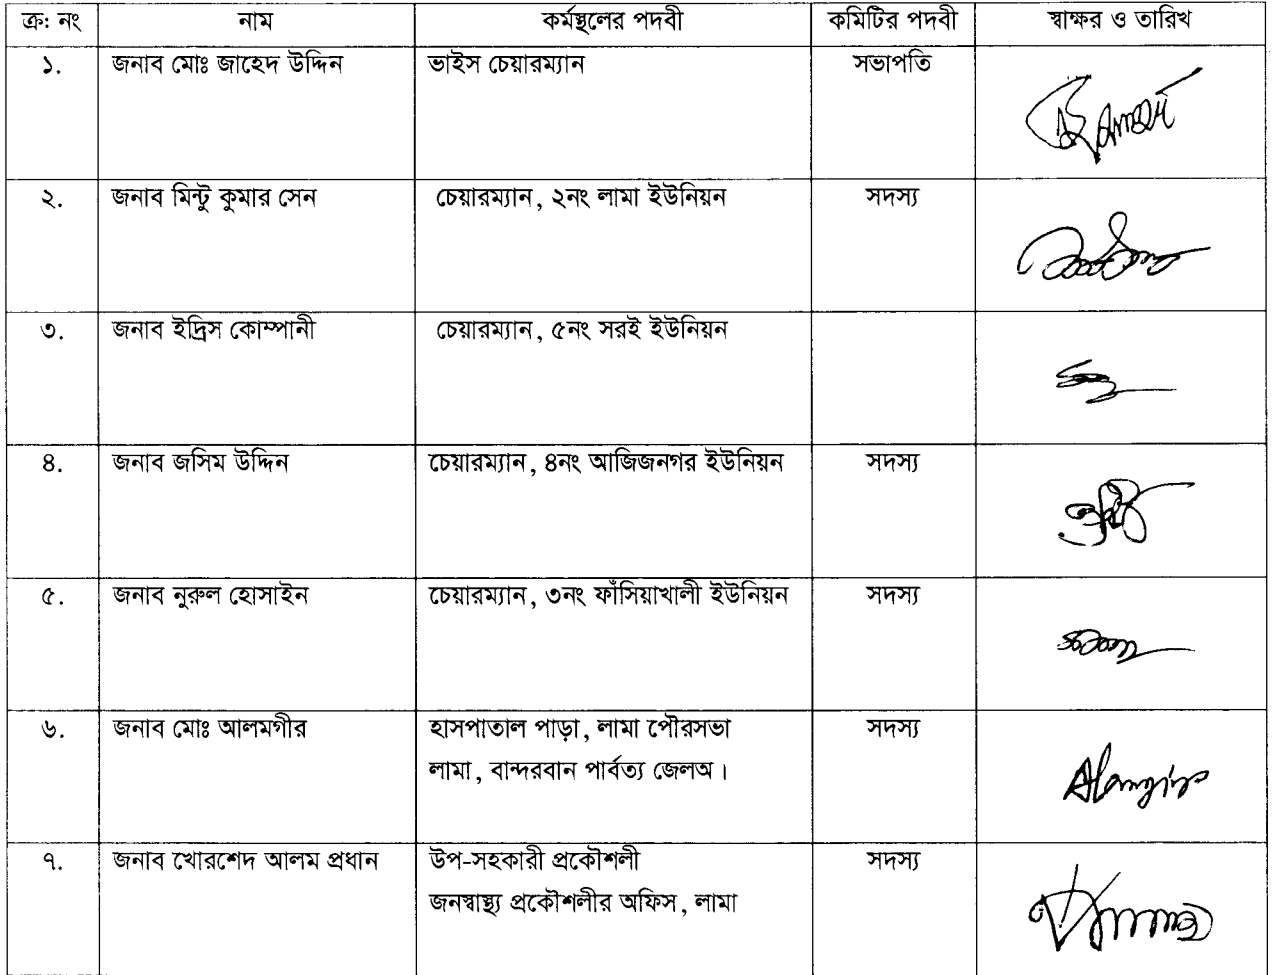 ক্র: নং নাম কর্মস্থলের পদবী কমিটির পদবী স্বাক্ষর ও তারিখ
১. জনাব মোঃ জাহেদ উদ্দিন ভাইস চেয়ারম্যান সভাপতি
২. জনাব মিন্টু কুমার সেন চেয়ারম্যান, ২নং লামা ইউনিয়ন সদস্য
৩. জনাব ইদ্রিস কোম্পানী চেয়ারম্যান, ৫নং সরই ইউনিয়ন
৪. জনাব জসিম উদ্দিন চেয়ারম্যান, ৪নং আজিজনগর ইউনিয়ন সদস্য
৫. জনাব নুরুল হোসাইন চেয়ারম্যান, ৩নং ফাঁসিয়াখালী ইউনিয়ন সদস্য
৬. জনাব মোঃ আলমগীর হাসপাতাল পাড়া, লামা পৌরসভা সদস্য
লামা, বান্দরবান পার্বত্য জেলঅ।
৭. জনাব খোরশেদ আলম প্রধান উপ-সহকারী প্রকৌশলী সদস্য
জনস্বাস্থ্য প্রকৌশলীর অফিস, লামা